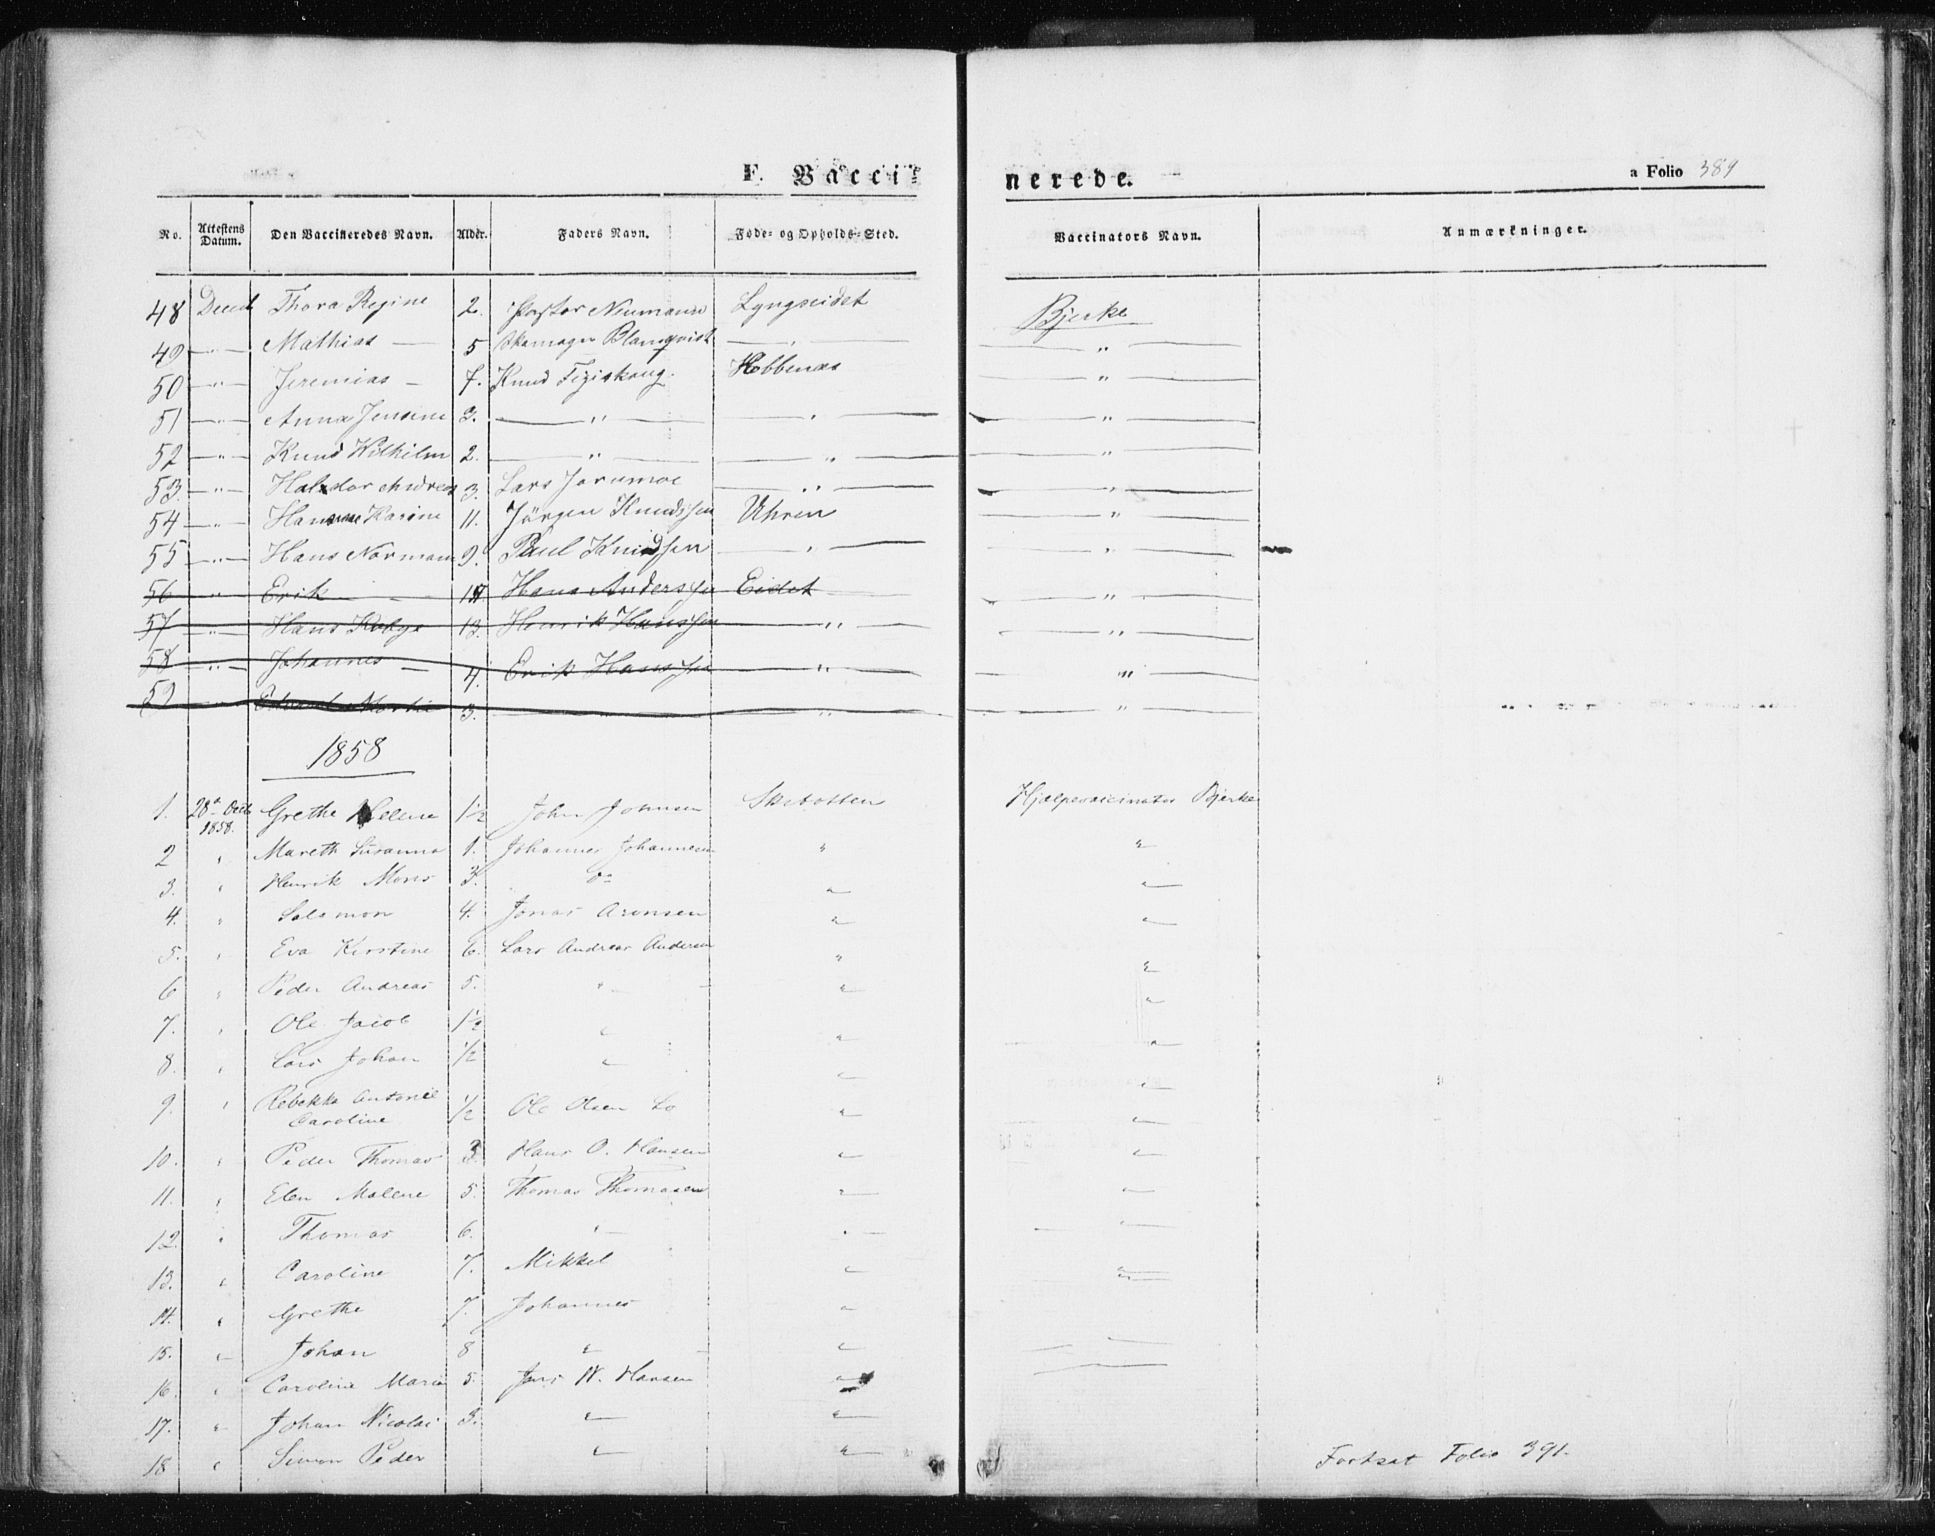 F. Vacci-
nerede.
a Folio 389
No. Attestens Datum. Den Vaccineredes Navn. Alder. Faders Navn. Føde- og Opholds-Sted. Vaccinators Navn. Anmærkninger.
48 Decembr Thora Regine 2. Pastor Neumann Lyngseidet Bjerke
49 —"— Mathias — 5 Blomqvist —"— —"—
50 —"— Jeremias — 7. Knud Hebbenæs —"—
51 —"— Anna Jensine 3. —"— —"— —"—
52 —"— Knud Wilhilm 2. —"— —"— —"—
53. —"— Haldor Andreas 3. Lars —"— —"—
54 —"— Hansine Karine 11. Jörgen Knudssen Uhren —"—
55 —"— Hans Normann 9. Paul Knudssen —"— —"—
56 —"— Erik — Hans Anderssen Eidet —"—
57 —"— Hans 13. Henrik Hanssen —"— —"—
58 —"— Johannes — 4. Erik Hanssen —"— —"—
59 —"— Edvard 3. —"— —"—
1858
1. 28de Octb 1858. Grethe Helene 1½ John Johnsen Skibotten Hjælpevaccinator Bjerke
2 " Mareth Susanna 1. Johannes Johannesen " "
3. " Henrik Mons 3. Do " "
4. " Salamon 4. Jonas Aronsen " "
5. " Eva Kirstine 6. Lars Andreas Andersen " "
6 " Peder Andreas 5. " " "
7. " Ole Jacob 1½ " " "
8. " Lars Johan ½ " " "
9. " Rebekka Antonie Caroline ½ Ole Olsen Lo " "
10. " Peder Thomas 3 Hans O. Hansen " "
11. " Elen Malene 5. Thomas Thomasen " "
12. " Thomas 6. " " "
13. " Caroline 7. Mikkel " "
14. " Grethe 7. Johannes "
15. " Johan 8 " "
16 " Caroline Maria 5. Jens W. Hansen "
17. " Johan Nicolai 3. " "
18 " Simon Peder " "
Fortsat Folio 391.